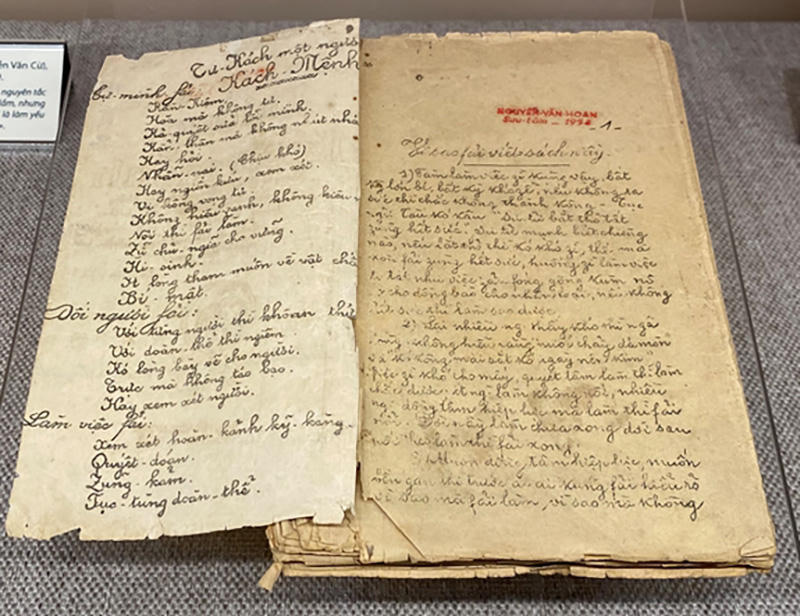 ễn Văn Cừ),
nguyên tắc
lắm, nhưng
là làm yếu
».
Tư-Kách một người
Kách-Mệnh
Tự-mình fải:
Kần-Kiệm.
Hoà mà không tư.
Kả quyết sửa lỗi mình.
Kẩn-thận mà không nhút nhát
Hay hỏi.
Nhẫn-nại. (Chịu khó)
Hay ngiên kứu, xem xét.
Vị công vong tư.
Không hiếu zanh, không kiêu
Nói thì fải làm.
Zữ chủ-ngiã cho vững.
Hi-sinh.
Ít lòng tham muốn về vật chất
Bí-mật.
Đối người fải:
Với từng người thì khoan thứ
Với đoàn-thể thì ngiêm.
Kó lòng bày vẽ cho người.
Trực mà không táo bạo.
Hay xem xét người.
Làm việc fải:
Xem xét hoàn-kảnh kỹ-kàng.
Quyết-đoán.
Zũng-kảm.
Fục-tùng đoàn-thể.
NGUYỄN-VĂN-HOAN
Sưu-tầm
-1-
Vì sao fải viết sách này.
1) Tám làm việc zì kũng vậy, bất
kỳ lớn bé, bất kỳ khó zễ, nếu không ra
sức thì chắc không thành kông. Tục
ngữ Tàu kó kâu "Sư tử bắt thỏ tất
zùng hết sức". Sư tử mạnh biết chừng
nào, nếu bắt thỏ thì kó khó zì, thế mà
kòn fải zùng hết sức, huống zì làm việc
to tát như việc zải-fóng gông kùm nô
lệ cho đồng bào, cho nhân loại, nếu không
hết sức thì làm sao được.
2) Lại nhiều ng thấy khó thì ngã
lòng, không hiểu rằng "nước chảy đá mòn
và "kó kông mài sắt kó ngày nên kim".
Việc zì khó cho mấy, quyết tâm làm thì làm
chắc được, ít ng làm không nổi, nhiều
ng đồng tâm hiệp lực mà làm thì fải
nổi. Đời này làm chưa xong đời sau
nối theo làm thì fải xong.
3) Muốn được tâm hiệp lực, muốn
bền gan thì trước là ai kũng fải hiểu rõ
vì sao mà fải làm, vì sao mà không